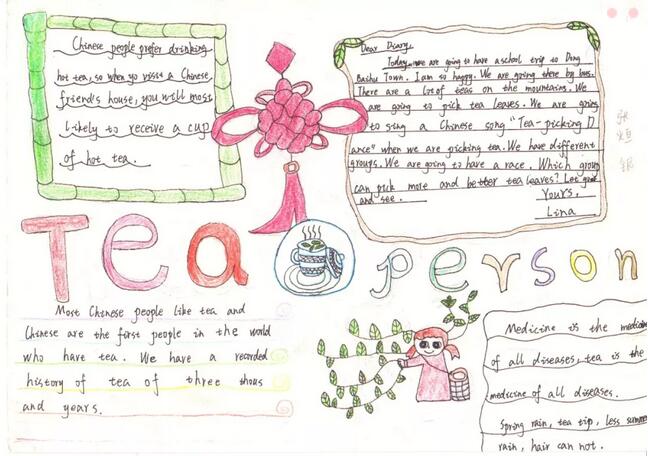 Chinese people prefer drinking
hot tea, so when yo visit a Chinese
friend's house, you will most
likely to receive a cup
of hot tea.
Dear Diary,
Today, we are going to have a school trip to Dong
Baihu Town. I am so happy. We are going there by bus.
There are a lot of teas on the mountains. We
are going to pick tea leaves. We are going
to sing a Chinese song "Tea-picking D
ance" when we are picking tea. We have different
groups. We are going to have a race. Which group
can pick more and better tea leaves? Let
and see.
Yours,
Lina
Tea person
Most Chinese people like tea and
Chinese are the first people in the world
who have tea. We have a recorded
history of tea of three thous
and years.
Medicine is the medicine
of all diseases, tea is the
medicine of all diseases.
Spring rain, tea tip, less summer
rain, hair can not.